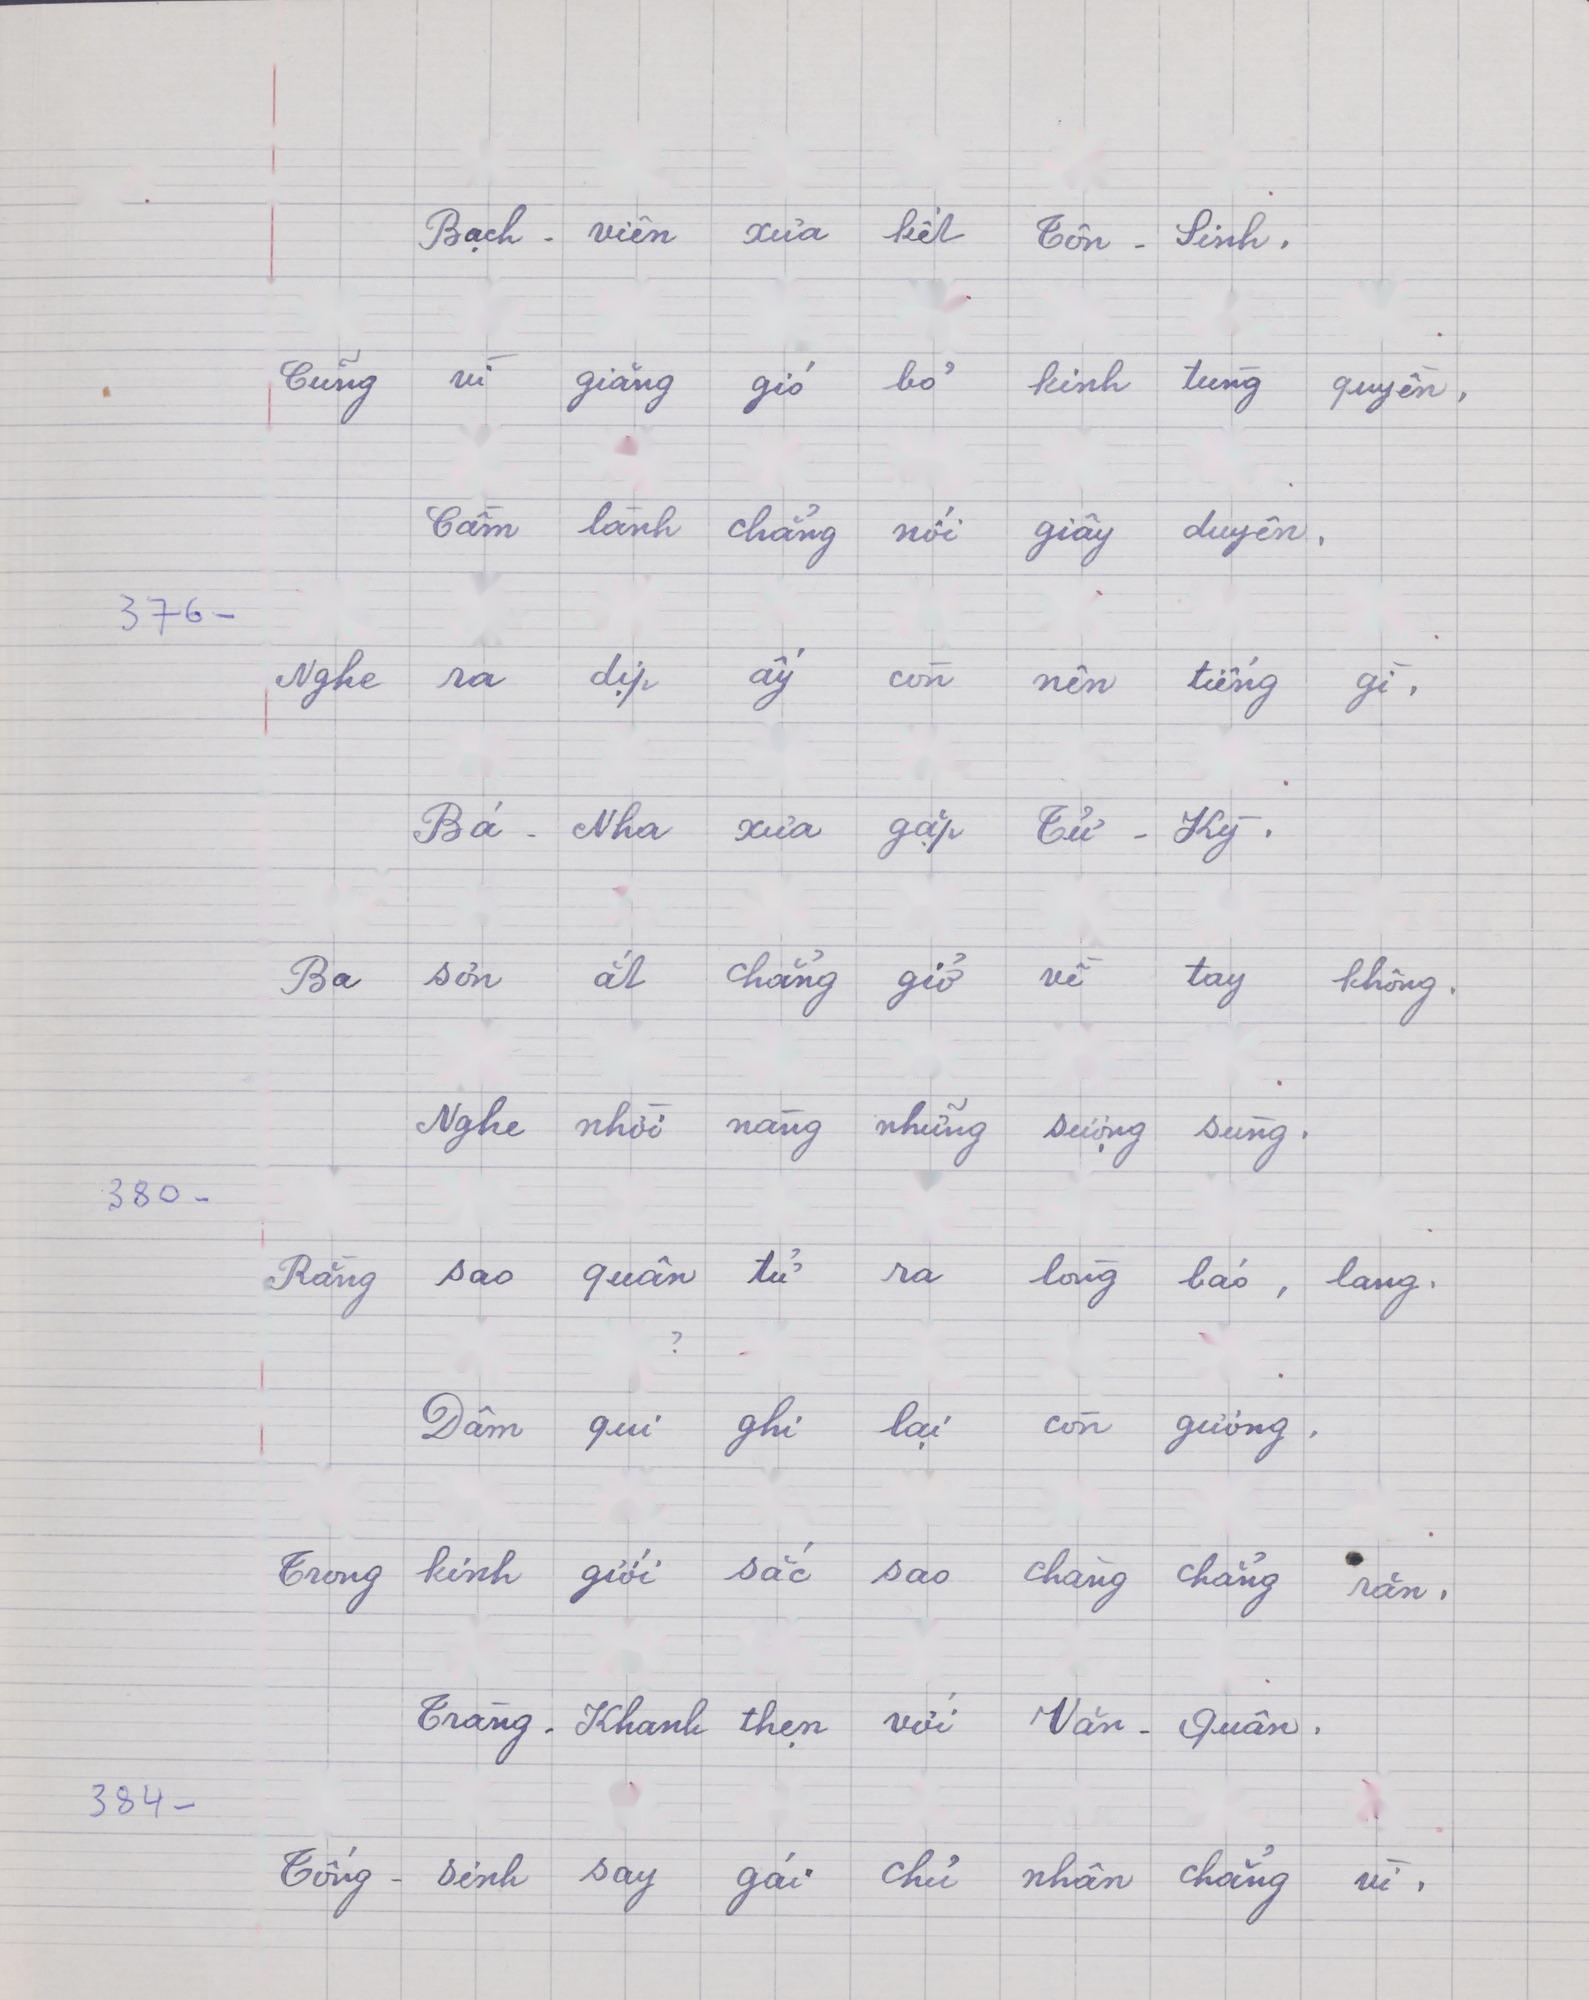 Bạch - viên xưa kết Tôn - Sinh.
Cũng vì giăng gió bỏ kinh tụng quyền.
Cầm lành chẳng nối giây duyên.
376-
Nghe ra dịp ấy còn nên tiếng gì.
Bá - Nha xưa gặp Tử - Kỳ.
Ba sơn ắt chẳng giở về tay không.
Nghe nhời nàng những sượng sùng.
380-
Rằng sao quân tử ra lòng báo, lang.
?
Dâm qui ghi lại còn gương.
Trong kinh giới sắc sao chàng chẳng răn.
Tràng - Khanh thẹn với Văn - Quân.
384-
Tống - sinh say gái chủ nhân chẳng vì.